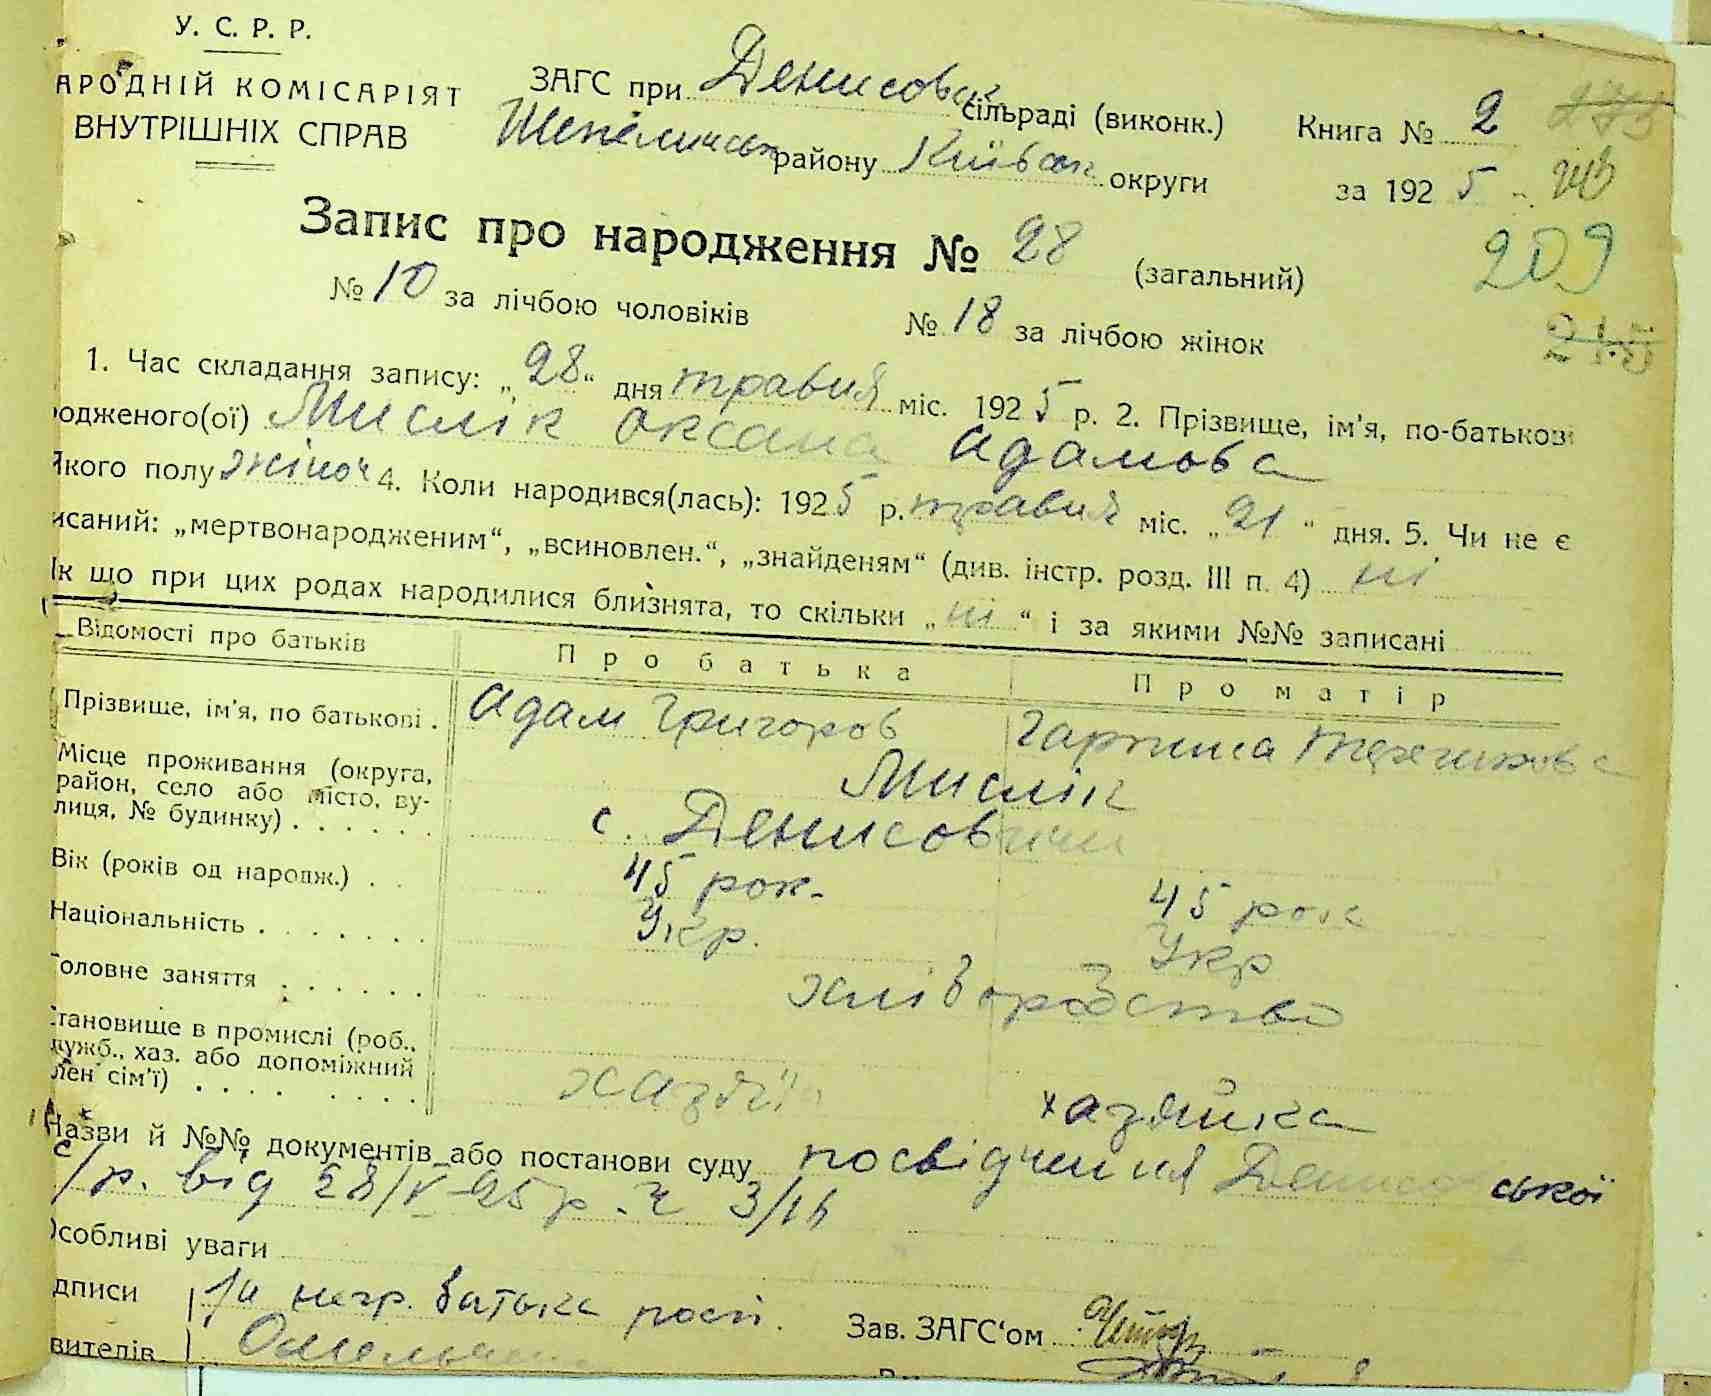 У. С. Р. Р.
АРОДНІЙ КОМІСАРІЯТ
ВНУТРІШНІХ СПРАВ
ЗАГС при Денисовск сільраді (виконк.)
району Київськ округи
Книга № 2
за 1925
Запис про народження № 28 (загальний)
209
№ 10 за лічбою чоловіків № 18 за лічбою жінок
1. Час складання запису: „28“ дня травня міс. 1925 р. 2. Прізвище, ім'я, по-батькові
одженого(ої) Мислік Оксана Адамовa
Якого полу жіноч 4. Коли народився(лась): 1925 р. травня міс. „21“ дня. 5. Чи не є
исаний: „мертвонародженим“, „всиновлен.“, „знайденям“ (див. інстр. розд. III п. 4) ні
к що при цих родах народилися близнята, то скільки „ні“ і за якими №№ записані
Відомості про батьків
Про батька
Про матір
Прізвище, ім'я, по батькові .
Адам Григоров
Гарпина
Мислік
Місце проживання (округа,
район, село або місто, ву-
лиця, № будинку) . . . . . .
с. Денисовичи
Вік (років од народж.) . .
45 рок.
45 рок
Національність . . . . . . .
Укр.
Укр
оловне заняття . . . . . .
хліборобство
тановище в промислі (роб.,
лужб., хаз. або допоміжний
лен сім'ї) . . . . . . .
хазяїн
хазяйка
Назви й №№ документів або постанови суду посвідчення Денисовської
с/р. від 28/V-25 р. ч 3/16
Особливі уваги
дписи
вителів
За негр. батька росп.
Зав. ЗАГС'ом